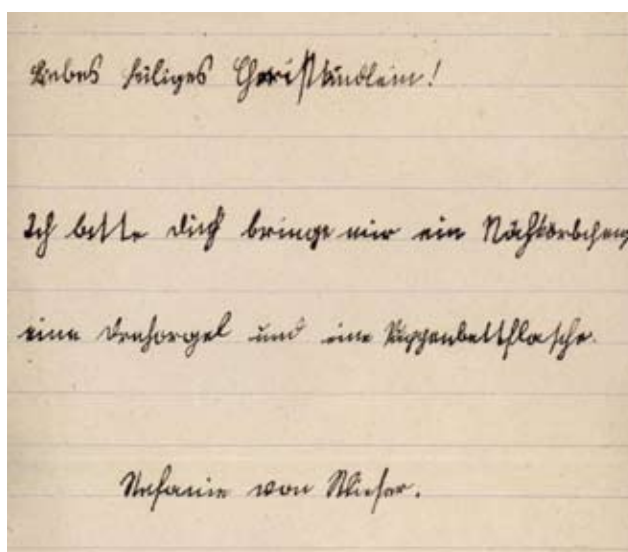 Liebes heiliges Christkindlein!
Ich bitte dich bringe mir ein Nähkörbchen,
eine Drehorgel und eine Puppenbettflasche.
Stefanie von Wieser.